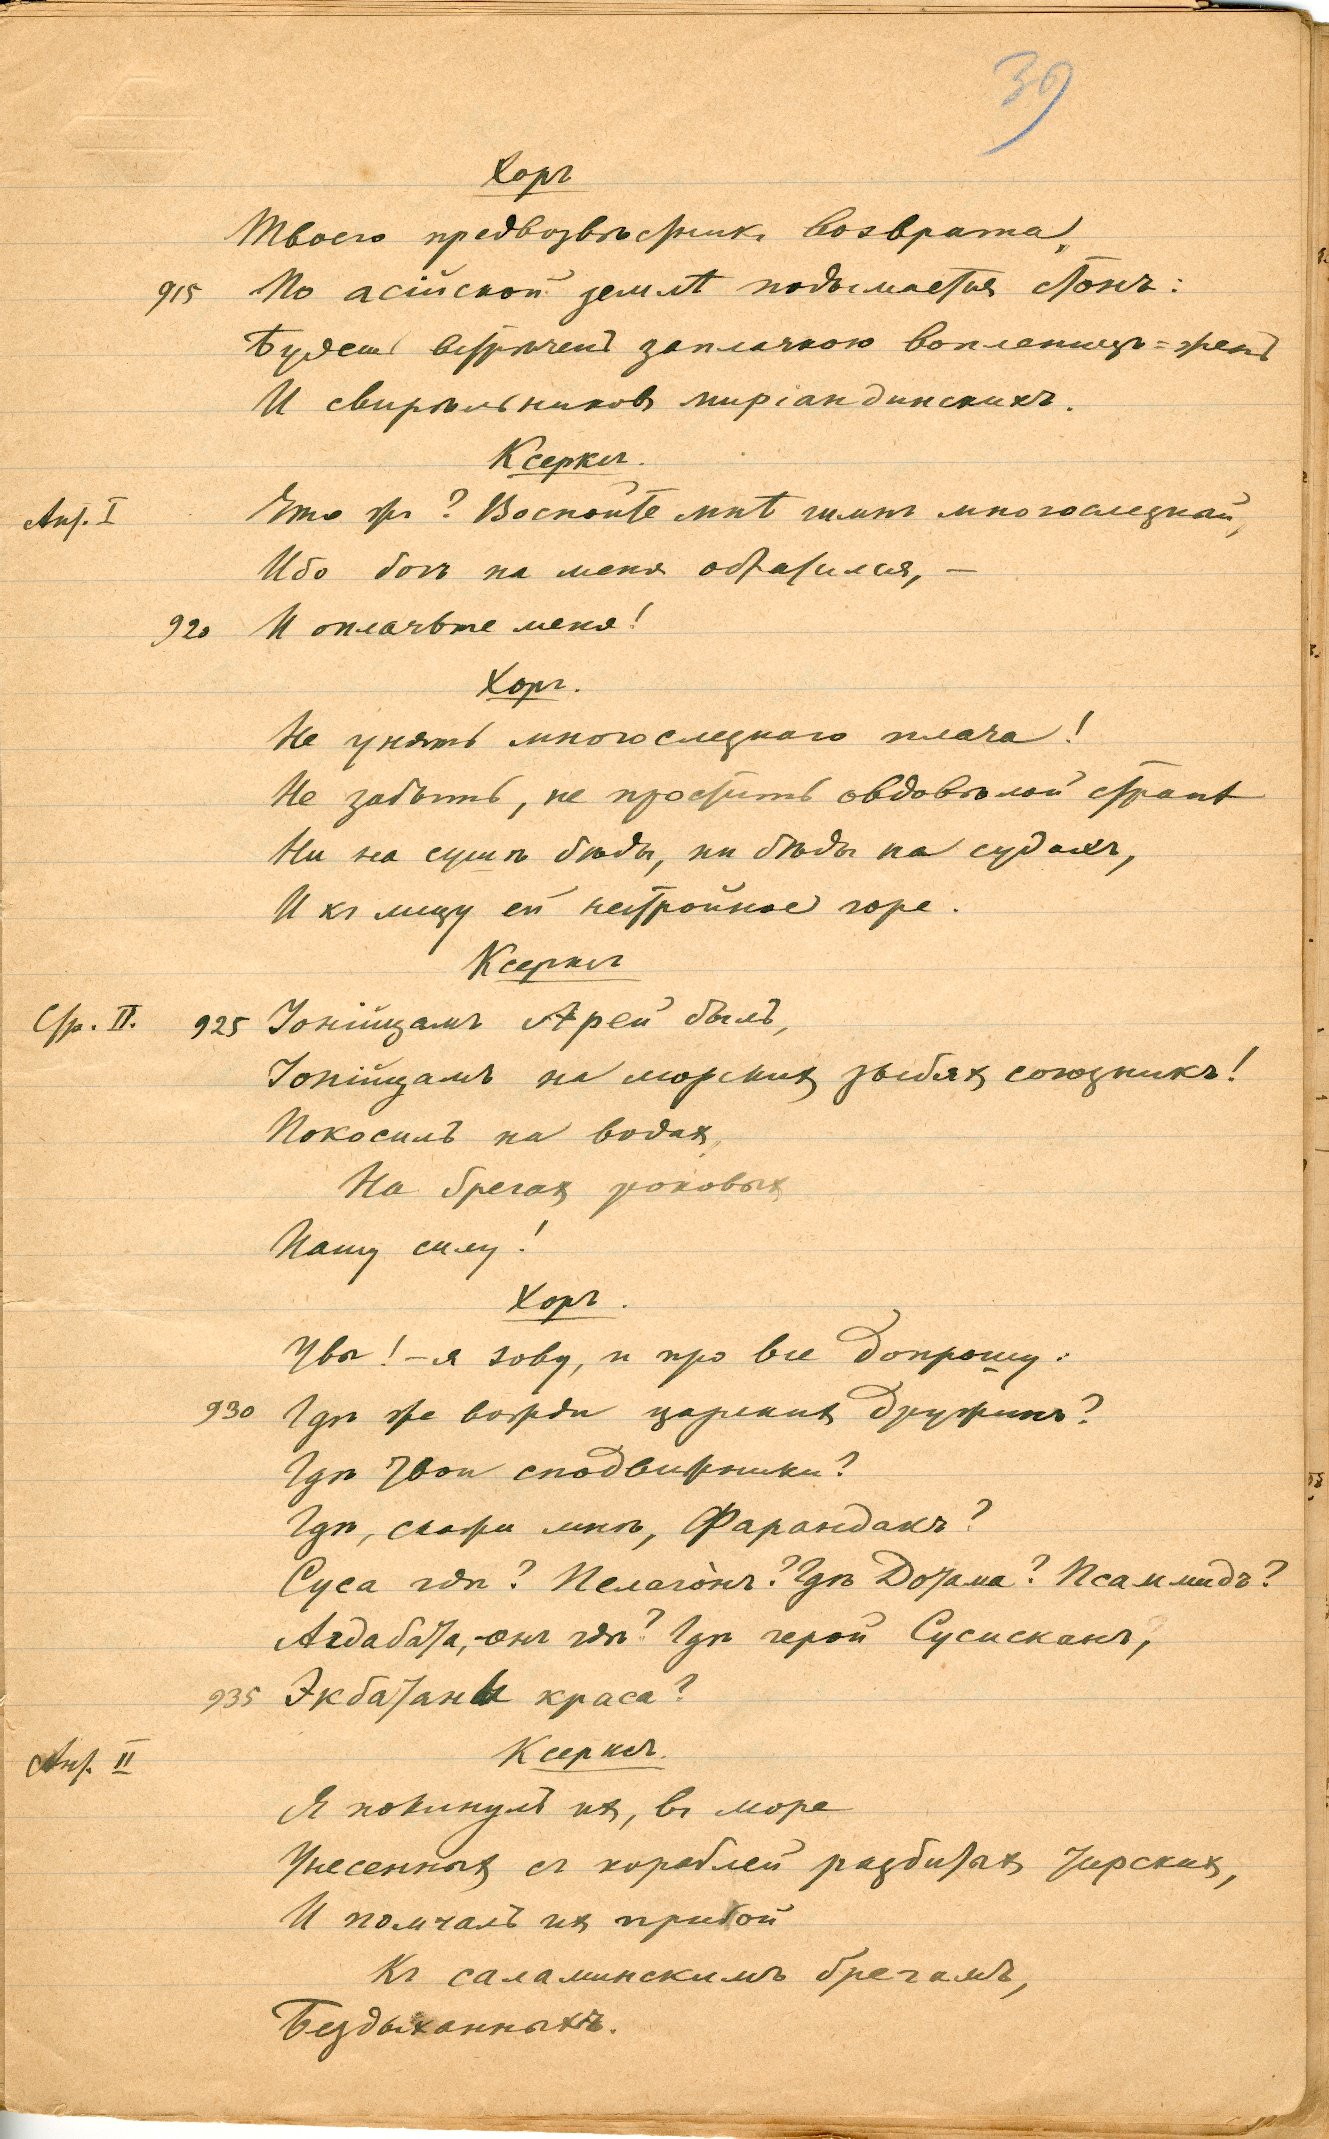 39
Хоръ
Твоего предвозвѣстникъ возврата,
915 По асійской землѣ подымается стонъ:
Будешь встрѣченъ заплачкою вопленицъ=женъ
И свирѣльниковъ миріандинскихъ.
Ксерксъ.
Ант. I Что жъ? Воспойте мнѣ гимнъ многослезный,
Ибо богъ на меня обратился, —
920 И оплачьте меня!
Хоръ.
Не унять многослезнаго плача!
Не забыть, не простить овдовѣлой странѣ
Ни на сушѣ бѣды, ни бѣды на судахъ,
И къ лицу ей нестройное горе.
Ксерксъ
Стр. II. 925 Іонійцамъ Арей былъ,
Іонійцамъ на морскихъ зыбяхъ союзникъ!
Покосилъ на водахъ,
На брегахъ роковыхъ
Нашу силу!
Хоръ.
Увы! – я зову, и про все допрошу:
930 Гдѣ же вожди царскихъ дружинъ?
Гдѣ твои сподвижники?
Гдѣ, скажи мнѣ, Фарандакъ?
Суса гдѣ? Пелагонъ? Гдѣ Дотама? Псаммидъ?
Агдабата,-онъ гдѣ? Гдѣ герой Сусисканъ,
935 Экбатаны краса?
Ксерксъ.
Ант. II
Я покинулъ ихъ, въ море
Унесенныхъ съ кораблей разбитыхъ тирскихъ,
И помчалъ ихъ прибой
Къ саламинскимъ брегамъ,
Бездыханныхъ.